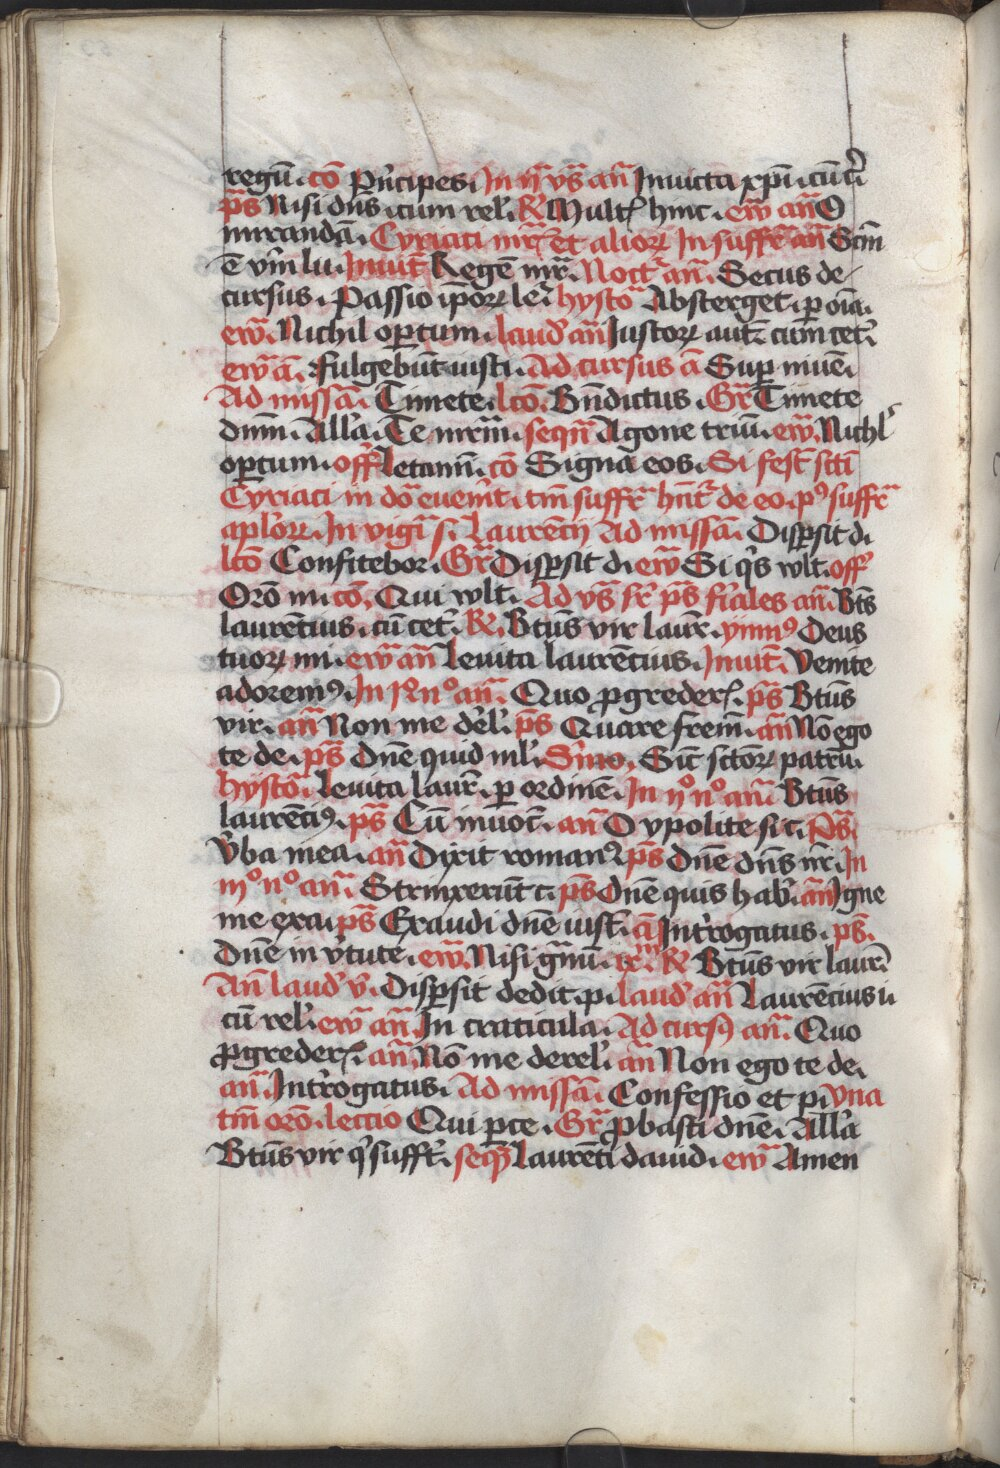 regū. cō P͛ncipes. In ij͛ vs̄ añ Inuicta xp̄i. cū c͛i
p̄s Nisi dn̄s. cum rel͛. ℟ Mult͛ hinc. ew̄ añ O
mirandā. Cyriaci mr̄ et alioꝝ In suffr͛ añ Scīm
Ē vīm lu. Inuit͛ Regē mr̄. Noct͛ añ. Secus de-
cursus. Passio ip̄oꝝ le͛ hysto͛ Absterget. ꝑ oīa.
ew̄. Nichil oꝑtum. laud͛ añ Iustoꝝ aut͛ cum cet͛.
ew̄ ā. Fulgebūt iusti. Ad cursus ā Suꝑ niuē.
Ad missā. Timete. lcō. Bn̄dictus. Gr̄ Timete
dn̄m. All͛a. Te mr̄m. seqn̄ Agone triū. ew̄. Nichl͛
oꝑtum. off͛ letamī. cō Signa eos. Si fest͛ sc̄i
Cyriaci in do͛ euen͛it. tm̄ suffr͛ hn̄t͛ de eo. pꝰ suffr͛
apl͛oꝝ. In vigi͛ s. Laurēcij Ad missā. Disꝑsit d.
lcō Confitebor. Gr̄ Disꝑsit d. ew̄ Si q͛s wlt. off͛
Orō mi. cō. Qui wlt. Ad vs̄ sr͛ p̄s fi͛ales añ. Bt̄s
laurēcius. cū cet͛. ℟. Bt̄us vir laur͛. ymnꝰ Deus
tuoꝝ mi. ew̄ añ leuita laurēcius. Inuit͛. Venite
adoremꝰ. In pͦ nͦ añ. Quo ꝓgreder͛. p̄s Bt̄us
vir. añ Non me de͛l͛. p̄s Quare frem̄. añ Nō ego
te de. p̄s Dn̄e quid ml͛. S͛mo. Sic͛ sc̄oꝝ patrū.
hystō. leuita laur͛. ꝑ ordinē. In ijͦ nͦ añ Bt̄us
laurēciꝰ. p̄s Cū inuoc͛. añ O ypolite si c. Ps̄
V͛ba mea. añ Dixit romanꝰ p̄s Dn̄e dn̄s nr̄. In
iijͦ nͦ añ. Strinxerūt c. p̄s Dn̄e quis hab͛. añ Igne
me exa. p̄s Exaudi dn̄e iust͛. ā Int͛rogatus. p̄s.
Dn̄e in v͛tute. ew̄. Nisi g͛nū. ixᵐ ℟ Bt̄us vir laur͛.
An̄ laud͛ v͛. Disꝑsit dedit. p. laud͛ añ Laurēcius i.
cū rel͛. ew̄ añ. In craticula. Ad cursꝰ añ. Quo
ꝓgreder͛. añ Nō me derel͛. añ Non ego te de.
añ. Int͛rogatus. Ad missā. Confessio et p. Vna
tm̄ orō. leccio Qui ꝑce. Gr̄ ꝓbasti dn̄e. All͛a
Bt̄us vir q͛ sufft͛. seqꝫ Laurēti dauid. ew̄ Amen